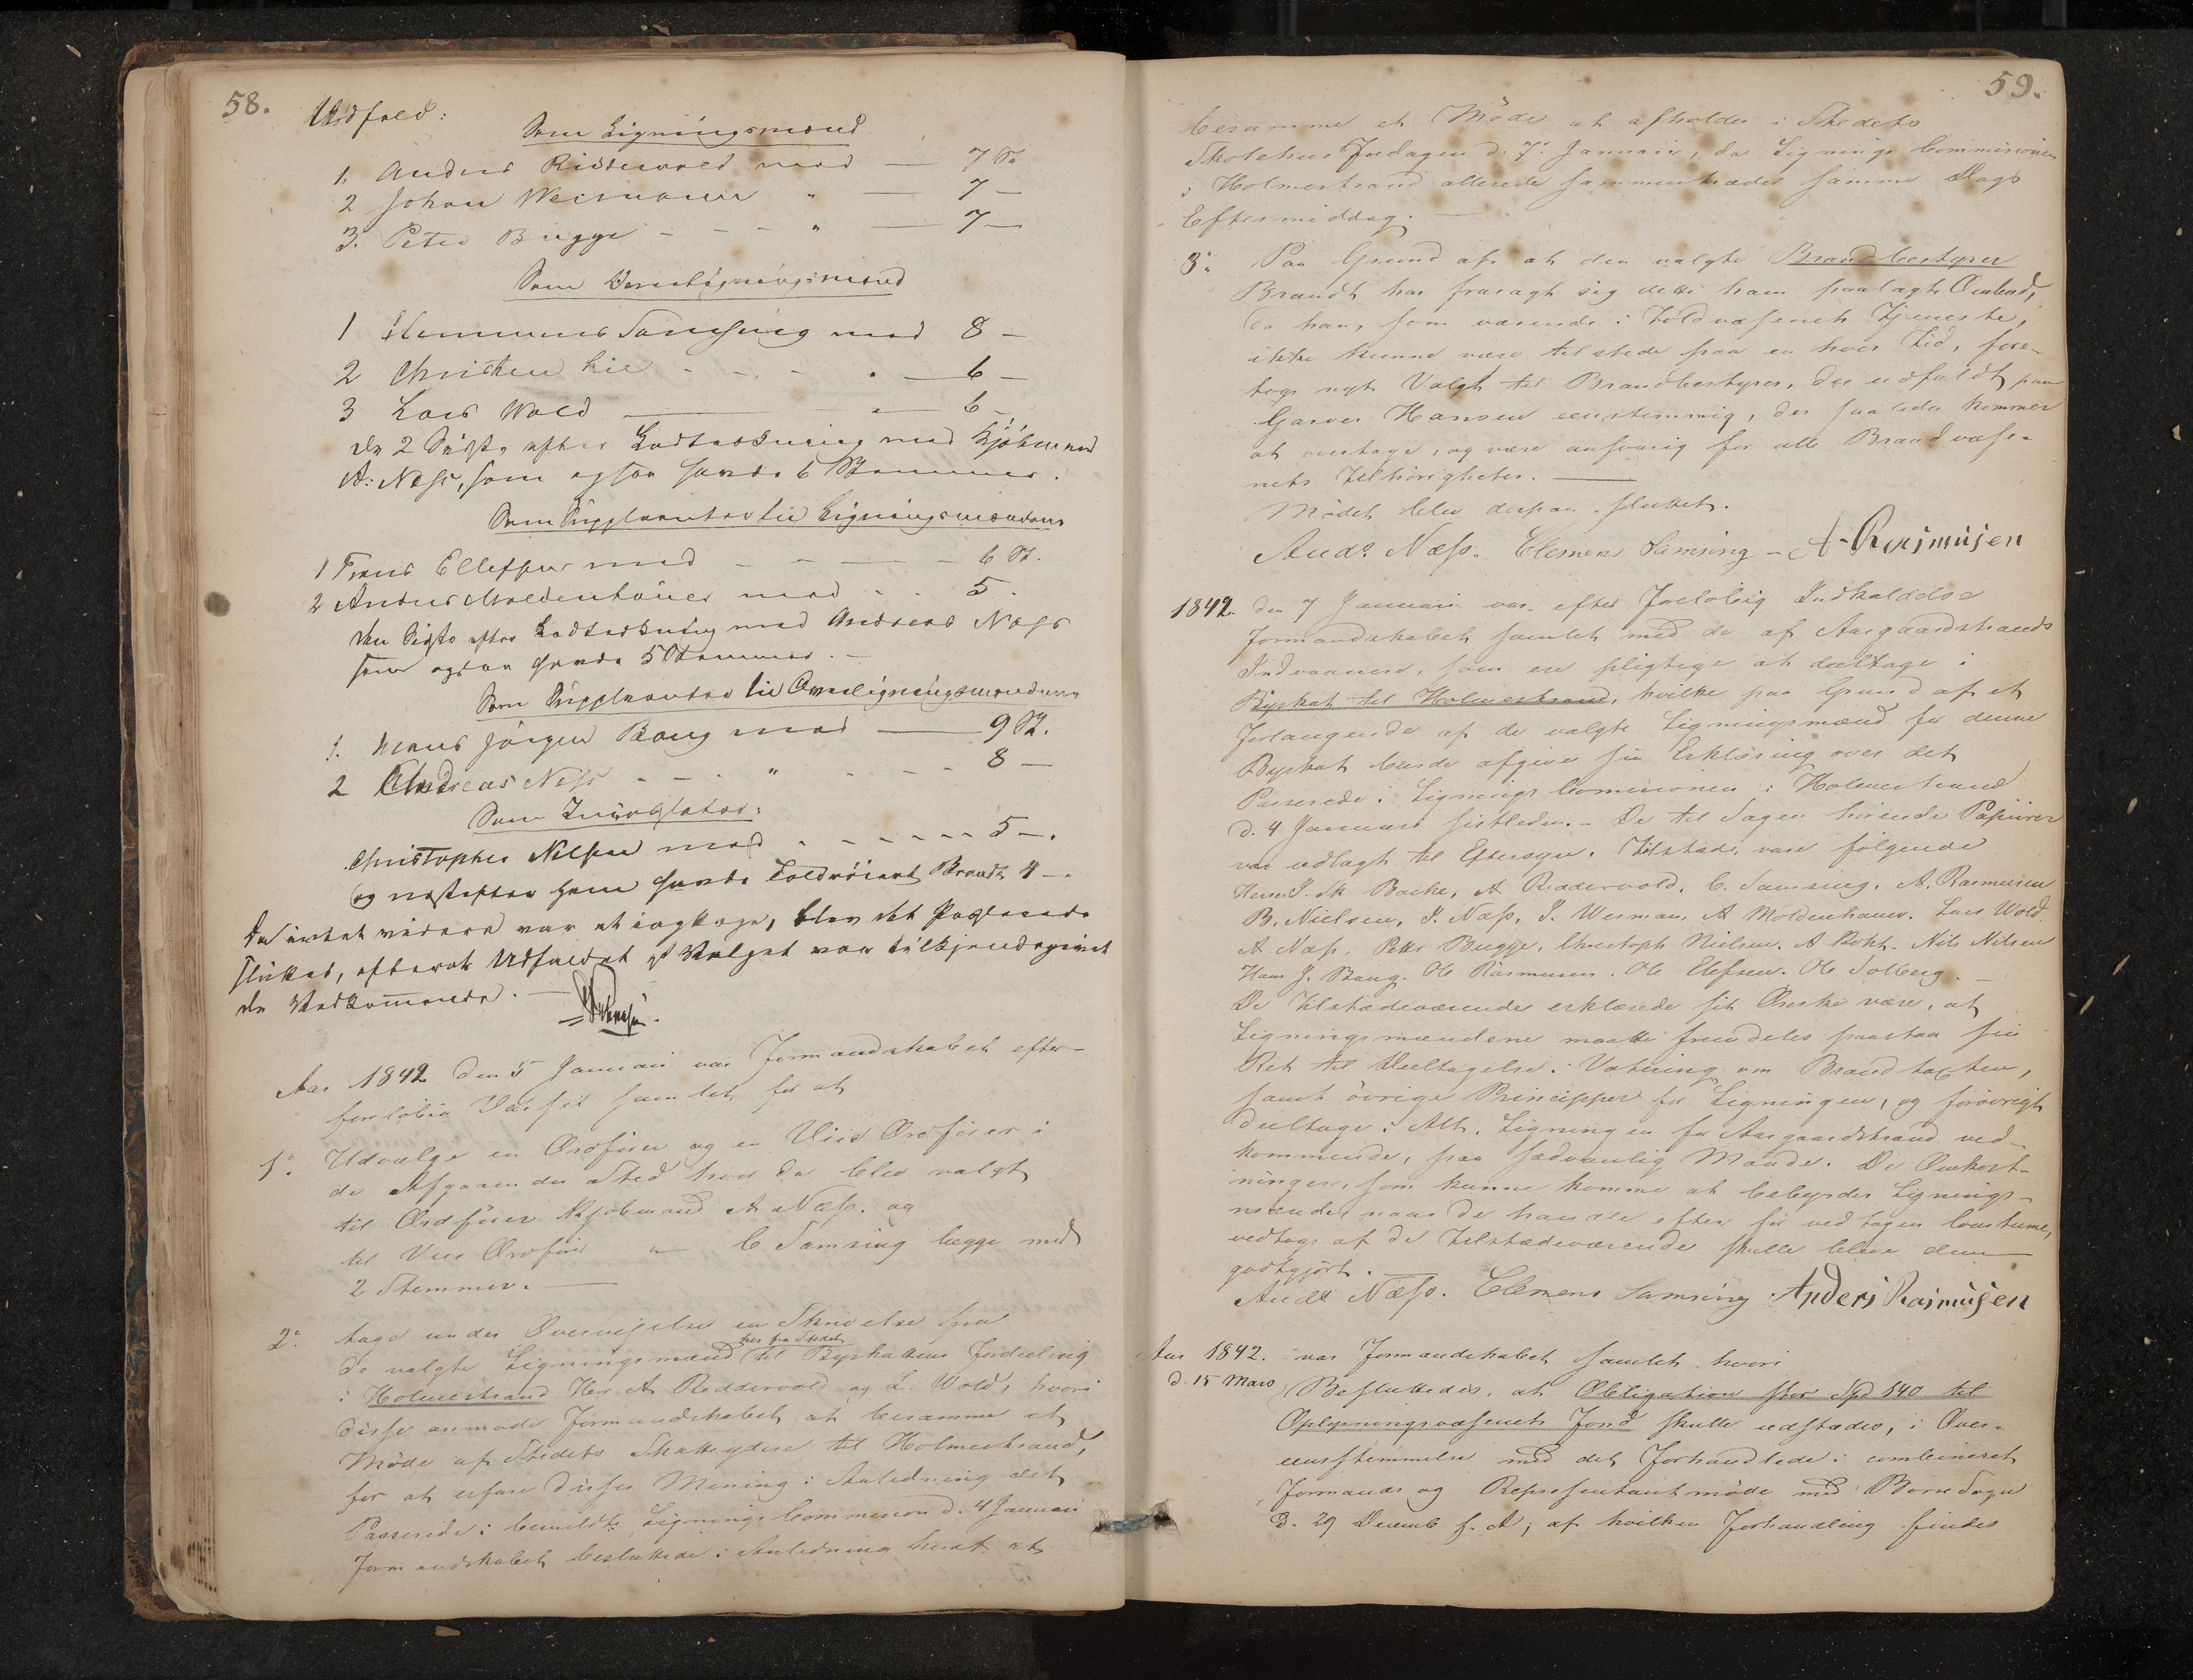 58.
Udfald:
Som Ligningsmænd
1. Anders Riddervold med — 7 St.
2 Johan Weismann " — 7 —
3. Peter Bugge - - - " — 7 —
Som Overligningsmænd
1 Clemmens Samsing med 8 —
2 Christen Lie - - - " — 6 —
3 Lars Wold — " — 6 —
de 2 Sidste efter Lodtrækning med Kjøbmand
A: Næss, som ogsaa havde 6 Stemmer.
Som Suppleanter til Ligningsmændene
1 Frans Ellefsen med - - — 6 St.
2 Anders Moldenhauer med - - 5.
den Sidste efter Lodtrækning med Andreas Næss
som ogsaa havde 5 Stemmer. —
Som Suppleanter til Overligningsmændene
1. Hans Jørgen Bang med — 9 St.
2 Andreas Næss - - - " - - - 8 —
Som
Christopher Nilsen med - - - - - 5 —.
og næstefter ham havde Toldrorert Brandt 4 —.
Da intet videre var at iagttage, blev det
sluttet, efterat Udfaldet af Valget var tilkjendegivet
de Vedkommende. —
Aar 1842 den 5 Januari var Formandskabet efter-
forløbig Varsel samlet for at
1º. Udvælge en Ordfører og en Vice Ordfører i
de Afgaaendes Sted hvor da blev valgt
til Ordfører Kjøbmand A Næss. og
til Vice Ordfører " C Samsing begge med
2 Stemmer. —
2º. tage under Overveielse en Skrivelse fra
her fra Stedet
de valgte Ligningsmænd til Byskattens Fordeling
i Holmestrand Her A Reddervold og L. Wold, hvori
disse anmode Formandskabet at beramme et
Møde af Stedets Skatteydere til Holmestrand,
for at erfare disses Mening i Anledning det
Passerede i bemeldte Lignings Commission d. 4 Januari
Formandskabet besluttede i Anledning heraf at
59.
beramme et Møde at afholdes i Stedets
Skolehuus Fredagen d. 7de Januari, da Lignings Commissionen
i Holmestrand allerede sammentræder samme Dags
Eftermiddag. —
3º. Paa Grund af at den valgte Brandbestyrer
Brandt har frasagt sig dette ham paalagte Ombud,
da han, som værende i Toldvæsenets Tjeneste,
ikke kunne være tilstede paa en hver Tid, fore-
togs nyt Valgt til Brandbestyrer, der udfaldt paa
Garver Hansen eenstemmig, der saaledes kommer
at overtage, og være ansvarig for alle Brandvæse-
nets Tilhørigheter. —
Mødet blev derpaa sluttet.
Andr. Næss. Clemens Samsing - A Rasmusen
1842. den 7 Januari var efter Forløbig Indkaldelse
Formandskabet samlet med de af Aasgaardstrands
Indvaanere, som ere pligtige at deeltage i
Byskat til Holmestrand, hvilke paa Grund af et
Forlangende af de valgte Ligningsmænd for denne
Byskat burde afgive sin Erklæring over det
Passerede i Lignings Commissionen i Holmestrand
d. 4 Januari sistleden. - De til Sagen hørende Papiirer
var udlagt til Eftersyn. Tilstæde vare følgende
Herrer J. Sk Backe, A Reddervold. C. Samsing. A. Rasmusen
B. Nielsen, J. Næss, J. Wesman, A Moldenhauer. Lars Wold.
A Næss. Petter Bugge. Christoph Nielsen. A Nils Nilsen
Hans J. Bang. Ole Rasmusen. Ole Elefsen. Ole Solberg. —
De Tilstædeværende erklærede sit Ønske være, at
Ligningsmændene maatte fremdeles paastaa sin
Ret til Deeltagelse i Votering om Brandtaxten,
samt øvrige Principper for Ligningen, og forøvrigt
deeltage i Alt, Ligningen for Aasgaardstrand ved-
kommende, paa sædvanlig Maade. De Omkost-
ninger, som kunne komme at bebyrdes Lignings-
mænder naar de handle efter før vedtagen Coustume,
vedtoges af de Tilstædeværende skulle bleve dem
godtgjort. —
Andr Næss. Clemens Samsing Anders Rasmusen
Aar 1842. var Formandskabet samlet hvori
d. 15 Mars Besluttedes, at Obligation stor Spd 840 til
Oplysningsvæsenets Fond skulle udstædes, i Over-
eensstemmelse med det Forhandlede i combineret
Formands og Repræsentantmøde med Borre Sogn
d. 29 Decemb f. A; af hvilken Forhandling findes